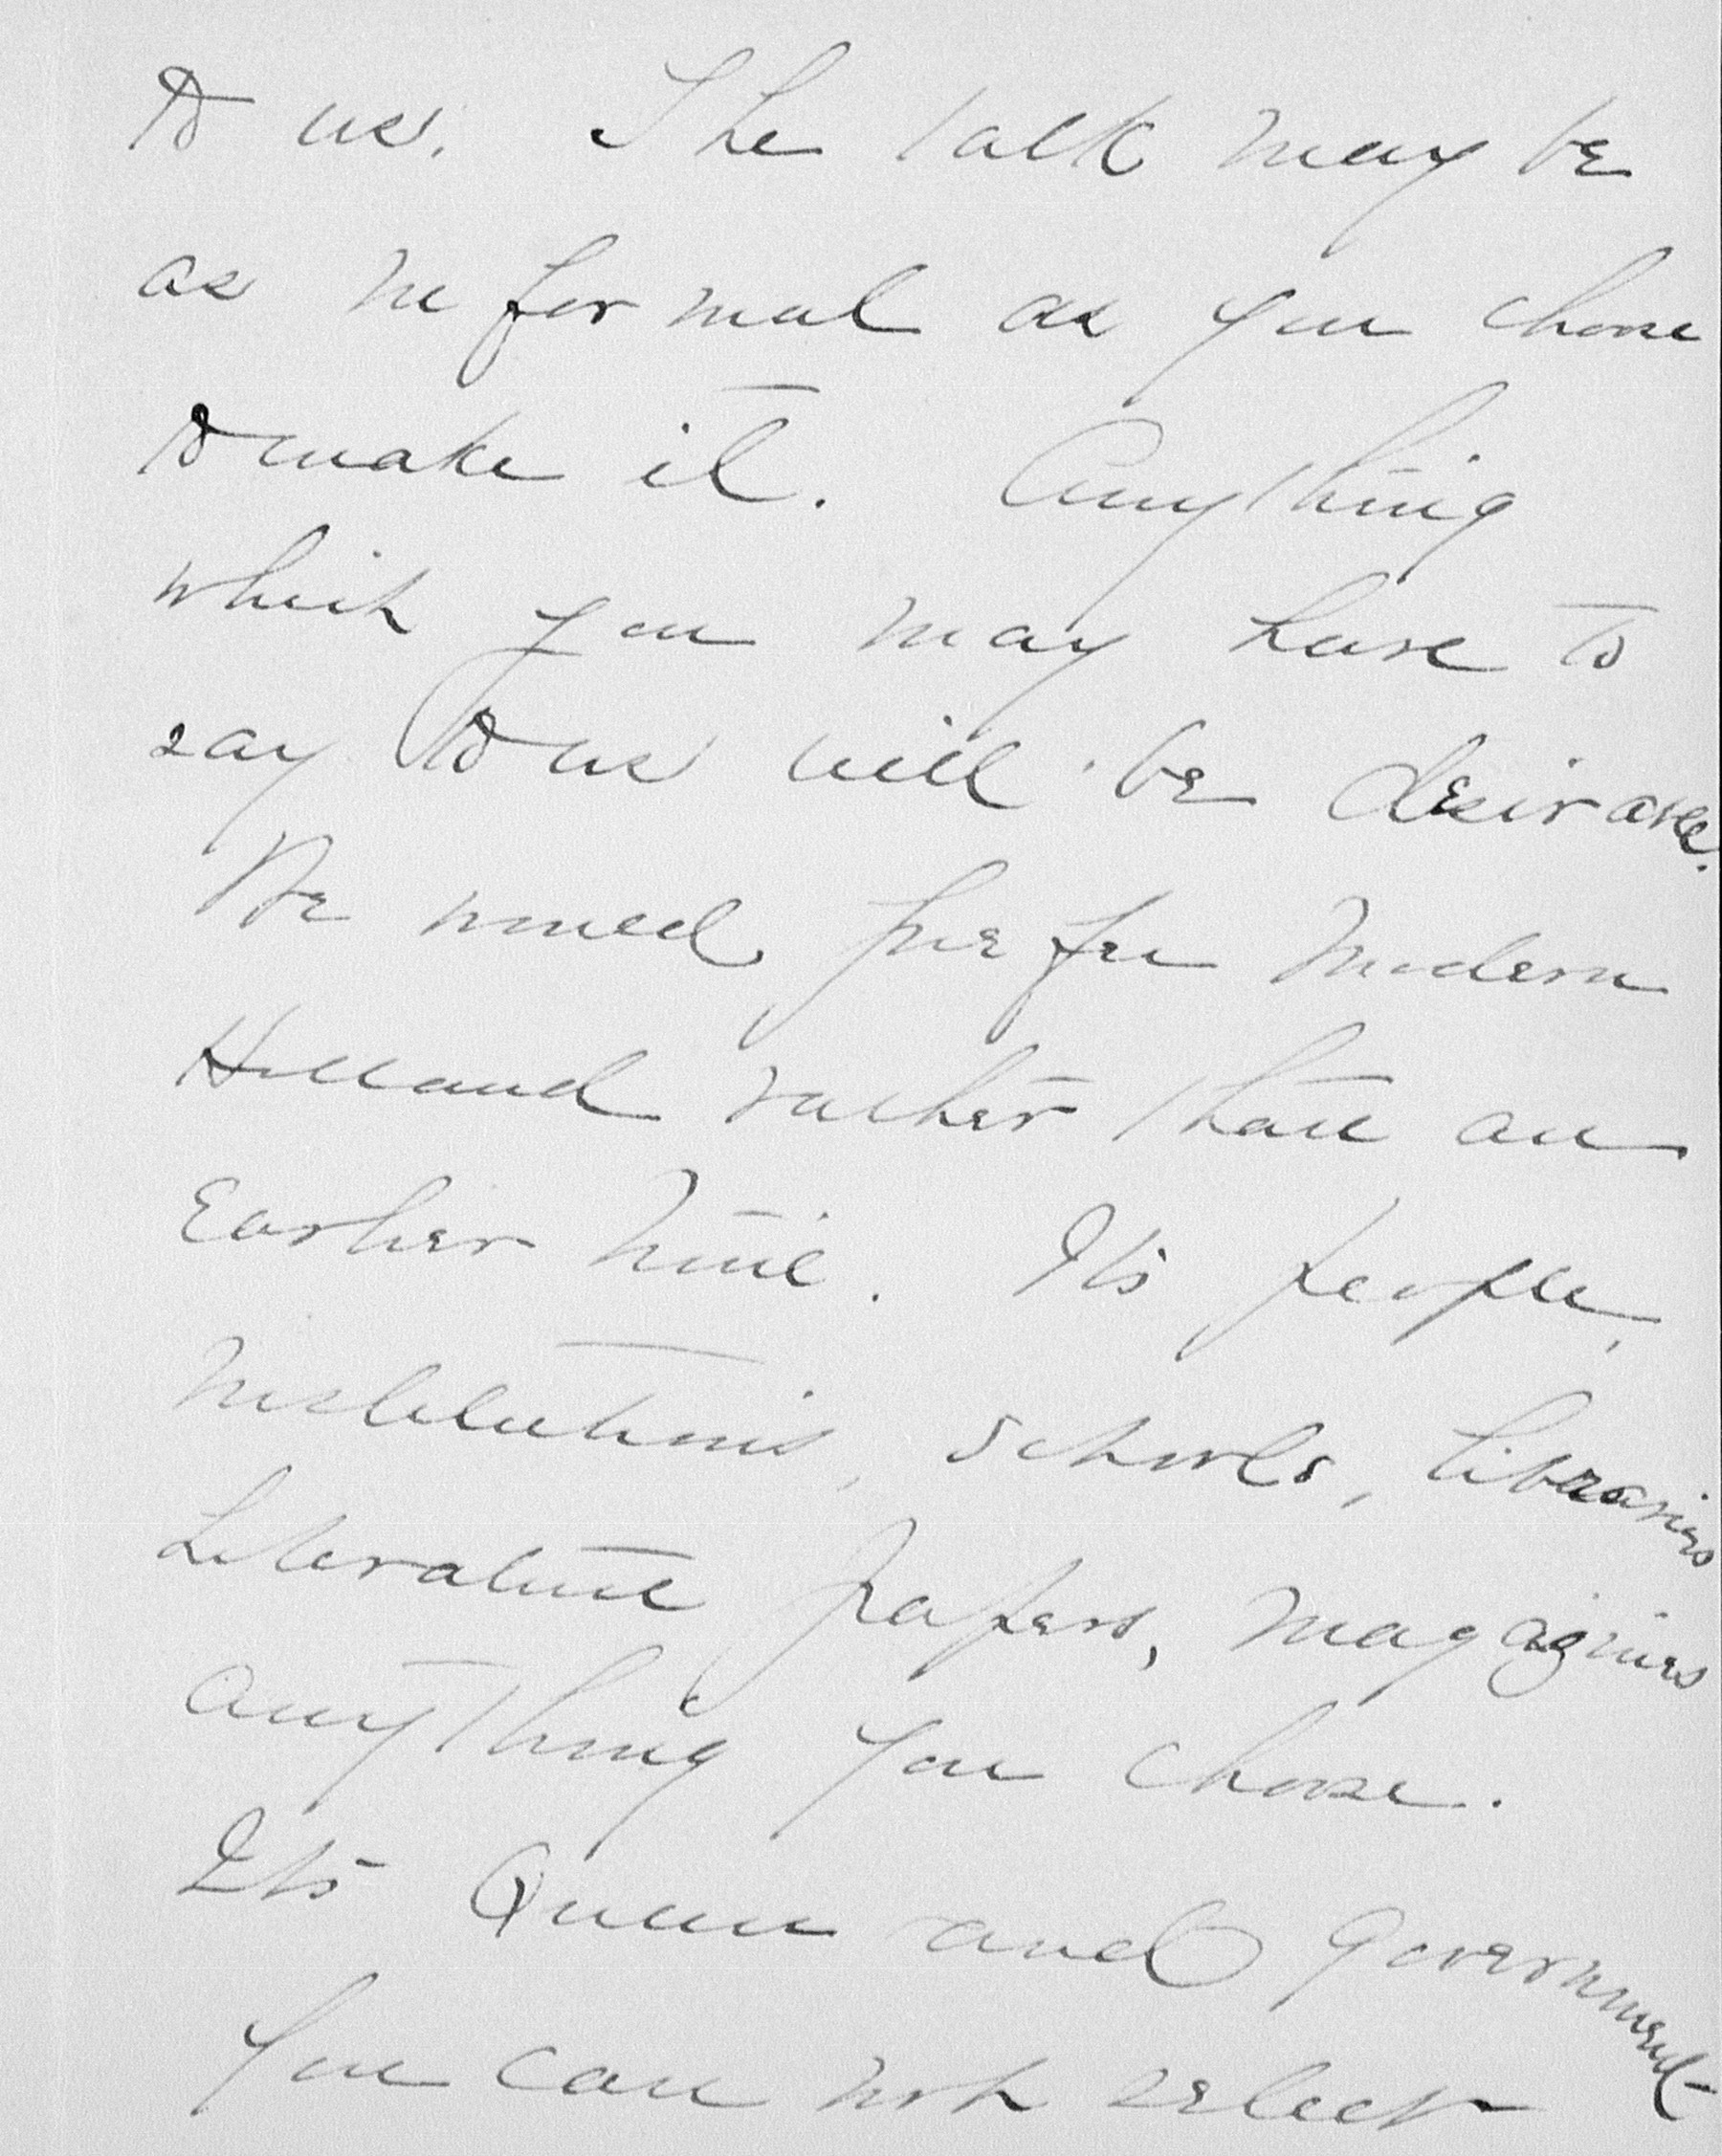 to us. The talk may be
as informal as you chose
to make it. Anything
which you may have to
say to us will be desirable.
We would prefer modern
Holland rather than an
Earlier time. Its people,
institutions, schools, libraries
Literature papers, magazines
anything you chose.
Its Queen and Government
You can not select